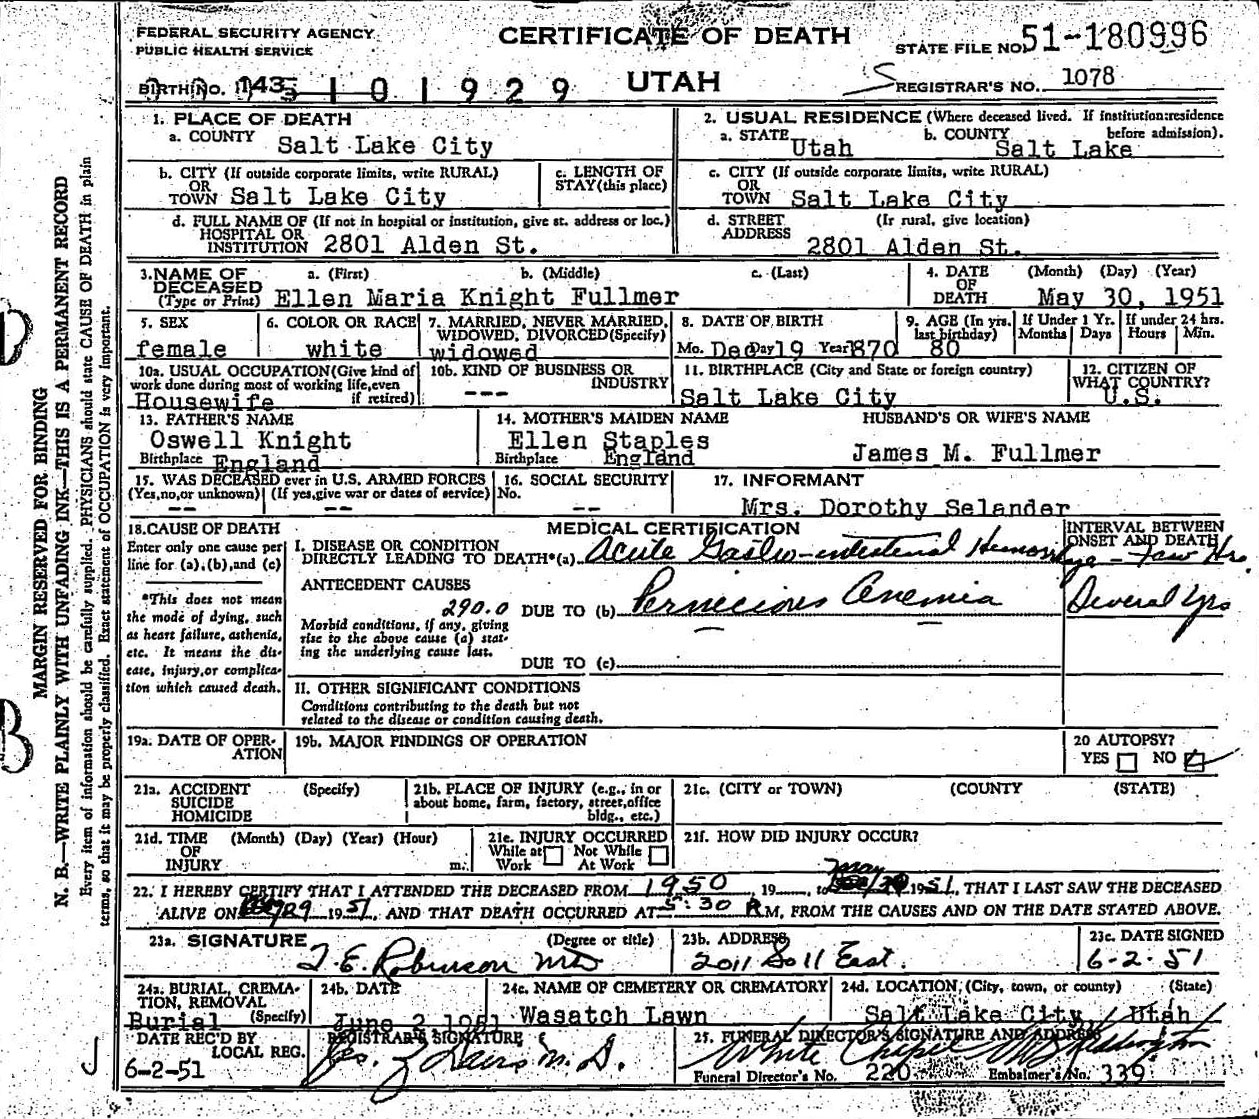 FEDERAL SECURITY AGENCY
PUBLIC HEALTH SERVICE
CERTIFICATE OF DEATH
STATE FILE NO. 51-180996
BIRTH NO. 143 101929
UTAH
REGISTRAR'S NO. 1078
MARGIN RESERVED FOR BINDING
N. B.—WRITE PLAINLY WITH UNFADING INK—THIS IS A PERMANENT RECORD
Every item of information should be carefully supplied. PHYSICIANS should state CAUSE OF DEATH in plain
terms, so that it may be properly classified. Exact statement of OCCUPATION is very important.
1. PLACE OF DEATH
a. COUNTY Salt Lake City
2. USUAL RESIDENCE (Where deceased lived. If institution:residence before admission).
a. STATE Utah b. COUNTY Salt Lake
b. CITY (If outside corporate limits, write RURAL)
OR TOWN Salt Lake City
c. LENGTH OF STAY (this place)
c. CITY (If outside corporate limits, write RURAL)
OR TOWN Salt Lake City
d. FULL NAME OF (If not in hospital or institution, give st. address or loc.)
HOSPITAL OR INSTITUTION 2801 Alden St.
d. STREET ADDRESS (Ir rural, give location)
2801 Alden St.
3. NAME OF DECEASED (Type or Print)
a. (First) b. (Middle) c. (Last)
Ellen Maria Knight Fullmer
4. DATE OF DEATH (Month) (Day) (Year)
May 30, 1951
5. SEX
female
6. COLOR OR RACE
white
7. MARRIED, NEVER MARRIED, WIDOWED, DIVORCED (Specify)
widowed
8. DATE OF BIRTH
Mo. Dec Day 19 Year 1870
9. AGE (In yrs. last birthday)
80
If Under 1 Yr. Months Days
If under 24 hrs. Hours Min.
10a. USUAL OCCUPATION (Give kind of work done during most of working life, even if retired)
Housewife
10b. KIND OF BUSINESS OR INDUSTRY
---
11. BIRTHPLACE (City and State or foreign country)
Salt Lake City
12. CITIZEN OF WHAT COUNTRY?
U.S.
13. FATHER'S NAME
Oswell Knight
Birthplace England
14. MOTHER'S MAIDEN NAME
Ellen Staples
Birthplace England
HUSBAND'S OR WIFE'S NAME
James M. Fullmer
15. WAS DECEASED ever in U.S. ARMED FORCES
(Yes, no, or unknown) (If yes, give war or dates of service)
-- --
16. SOCIAL SECURITY No.
--
17. INFORMANT
Mrs. Dorothy Selander
18. CAUSE OF DEATH
Enter only one cause per line for (a), (b), and (c)
*This does not mean the mode of dying, such as heart failure, asthenia, etc. It means the disease, injury, or complication which caused death.
MEDICAL CERTIFICATION
INTERVAL BETWEEN ONSET AND DEATH
I. DISEASE OR CONDITION
DIRECTLY LEADING TO DEATH*(a) Acute Gastro-intestinal Hemorrhage - Few Hrs.
ANTECEDENT CAUSES
290.0 DUE TO (b) Pernicious Anemia Several Yrs
Morbid conditions, if any, giving rise to the above cause (a) stating the underlying cause last.
DUE TO (c)
II. OTHER SIGNIFICANT CONDITIONS
Conditions contributing to the death but not related to the disease or condition causing death.
19a. DATE OF OPERATION
19b. MAJOR FINDINGS OF OPERATION
20 AUTOPSY?
YES NO
21a. ACCIDENT SUICIDE HOMICIDE (Specify)
21b. PLACE OF INJURY (e.g., in or about home, farm, factory, street, office bldg., etc.)
21c. (CITY or TOWN) (COUNTY (STATE)
21d. TIME OF INJURY (Month) (Day) (Year) (Hour) m.
21e. INJURY OCCURRED
While at Work Not While At Work
21f. HOW DID INJURY OCCUR?
22. I HEREBY CERTIFY THAT I ATTENDED THE DECEASED FROM 1950, 19 , to May 1951, THAT I LAST SAW THE DECEASED
ALIVE ON 29 1951, AND THAT DEATH OCCURRED AT 5:30 P.M, FROM THE CAUSES AND ON THE DATE STATED ABOVE.
23a. SIGNATURE (Degree or title)
T. E. Robinson MD
23b. ADDRESS
2011 So 11 East.
23c. DATE SIGNED
6-2-51
24a. BURIAL, CREMATION, REMOVAL (Specify)
Burial
24b. DATE
June 2 1951
24c. NAME OF CEMETERY OR CREMATORY
Wasatch Lawn
24d. LOCATION (City, town, or county) (State)
Salt Lake City, Utah
DATE REC'D BY LOCAL REG.
6-2-51
REGISTRAR'S SIGNATURE
M. D.
25. FUNERAL DIRECTOR'S SIGNATURE AND ADDRESS
White Chapel
Funeral Director's No. 220 Embalmer's No. 339